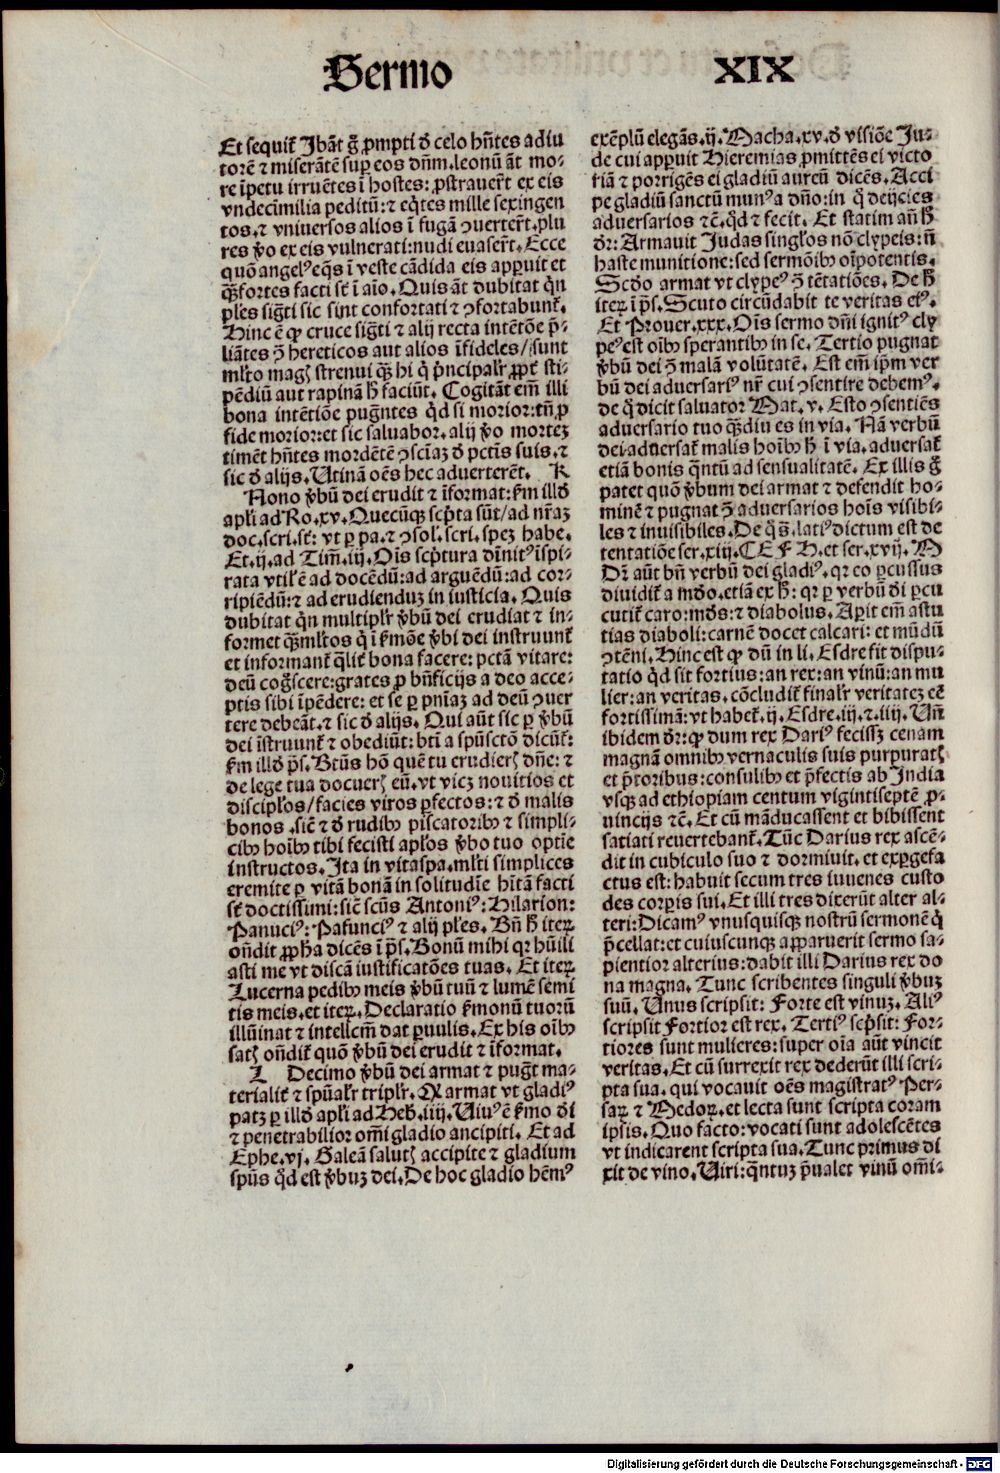 Sermo XIX
Et sequit̄ Jbāt g̃ ꝓmpti ð celo hñtes adiu
torē ⁊ miserātē suꝑ eos dñm. leonū āt mo⸗
re īpetu irruētes ī hostes: ꝓstrauer̄t ex eis
vndecimilia peditū: ⁊ eq̄tes mille sexingen
tos. ⁊ vniuersos alios ī fugā ꝯuerter̄t. plu
res ꝟo ex eis vulnerati: nudi euaser̄t. Ecce
quō angelꝰ eq̄s ī veste cādida eis apꝑuit et
q̄ꝫ fortes facti st̄ ī aīo. Quis āt dubitat qͥn
ples sigt̄i sic sint confortati ⁊ ꝯfortabunt̄.
Hinc ē ꝙ cruce sigt̄i ⁊ alij recta intētōe p̄⸗
liātes ꝯ̄ hereticos aut alios īfideles/ sunt
ml̄to magꝭ strenui q̄ꝫ hi qͥ pͥncipalr̄ ꝓpt̄ sti⸗
pēdiū aut rapinā h̄ faciūt. Cogitāt em̄ illi
bona intētiōe pug̃ntes qͥd si morior: tn̄ ꝓ
fide morior: et sic saluabor. alij ꝟo mortez
timēt hñtes mordētē ꝯsciāz ð pctīs suis. ⁊
sic ð alijs. Utinā oēs hec aduerterēt. K
Nono ꝟbū dei erudit ⁊ īformat: ẜm illð
apl̄i ad Ro. xv. Quecūqꝫ scpͥta sūt/ ad nr̄az
doc. scri. st̄: vt ꝑ pa. ⁊ ꝯsol. scri. spez habe.
Et. ij. ad Tim̄. iij. Oīs scpͥtura dīnitꝰ īspi⸗
rata vtil̄ ē ad docēdū: ad arguēdū: ad cor⸗
ripiēdū: ⁊ ad erudienduz in iusticia. Quis
dubitat qͥn multiplr̄ ꝟbū dei erudiat ⁊ in⸗
formet q̄ꝫ ml̄tos qͥ ī ẜmōe ꝟbi dei instruunt̄
et informant̄ qͣlit̄ bona facere: pctā vitare:
deū cog̃scere: grates ꝓ bn̄ficijs a deo acce⸗
ptis sibi īpēdere: et se ꝑ pn̄iaz ad deū ꝯuer
tere debeāt. ⁊ sic ð alijs. Qui aūt sic ꝑ ꝟbū
dei īstruunt̄ ⁊ obediūt: bt̄i a spūsctō dicūt̄:
ẜm illð ps̄. Bt̄us hō quē tu erudierꝭ dn̄e: ⁊
de lege tua docuerꝭ eū. vt vicz nouitios et
discipl̄os/ facies viros ꝑfectos: ⁊ ð malis
bonos. sic̄ ⁊ ð rudibꝫ piscatoribꝫ ⁊ simpli⸗
cibꝫ hoībꝫ tibi fecisti apl̄os ꝟbo tuo optīe
instructos. Ita in vitaspa. ml̄ti simplices
eremite ꝑ vitā bonā in solitudīe hītā facti
st̄ doctissimi: sic̄ scūs Antoniꝰ: Hilarion:
Panuciꝰ: Pafunciꝰ ⁊ alij ples. Bn̄ h̄ iteꝝ
on̄dit ꝓpha dicēs ī ps̄. Bonū mihi qꝛ hūili
asti me vt discā iustificatōes tuas. Et iteꝝ
Lucerna pedibꝫ meis ꝟbū tuū ⁊ lumē semi
tis meis. et iteꝝ. Declaratio ẜmonū tuorū
illūinat ⁊ intellcm̄ dat ꝑuulis. Ex his oībꝫ
satꝭ on̄dit̄ quō ꝟbū dei erudit ⁊ īformat.
L Decimo ꝟbū dei armat ⁊ pug̃t ma⸗
terialit̄ ⁊ spūalr̄ triplr̄. Nā armat vt gladiꝰ
patꝫ ꝑ illð apl̄i ad Heb̄. iiij. Uiuꝰ ē ẜmo di
⁊ penetrabilior om̄i gladio ancipiti. Et ad
Ephe. vj. Galeā salutꝭ accipite ⁊ gladium
spūs qͥd est ꝟbuz dei. De hoc gladio hēmꝰ
exēplū elegās. ij. Macha. xv. ð visiōe Ju⸗
de cui apꝑuit Hieremias ꝓmittēs ei victo
riā ⁊ porrigēs ei gladiū aureū dicēs. Acci
pe gladiū sanctū munꝰ a dn̄o: in qͦ deijcies
aduersarios ⁊c̄. qͥd ⁊ fecit. Et statim an̄ h̄
dr̄: Armauit Judas singl̄os nō clypeis: n̄
haste munitione: sed sermōibꝫ oīpotentis.
Scðo armat vt clypeꝰ ꝯ̄ tētatiōes. De h̄
iteꝝ ī ps̄. Scuto circūdabit te veritas eiꝰ.
Et Prouer. xxx. Oīs sermo dn̄i ignitꝰ cly
peꝰ est oībꝫ sperantibꝫ in se. Tertio pugnat
ꝟbū dei ꝯ̄ malā volūtatē. Est em̄ ip̄m ver
bū dei aduersariꝰ nr̄ cui ꝯsentire debemꝰ.
de qͦ dicit saluator Mat. v. Esto ꝯsentiēs
aduersario tuo q̄ꝫdiu es in via. Nā verbū
dei aduersat̄ malis hoībꝫ h̄ ī via. aduersat̄
etiā bonis qͣntū ad sensualitatē. Ex illis g̃
patet quō ꝟbum dei armat ⁊ defendit ho⸗
minē ⁊ pugnat ꝯ̄ aduersarios hoīs visibi⸗
les ⁊ inuisibiles. De qͦ s̄. latiꝰ dictum est de
tentatiōe ser. xiij. C E F H. et ser. xvij. M
Dr̄ aūt bn̄ verbū dei gladiꝰ. qꝛ eo ꝑcussus
diuidit̄ a mðo. etiā ex h̄: qꝛ ꝑ verbū di ꝑcu
cutit̄ caro: mðs: ⁊ diabolus. Aꝑit em̄ astu
tias diaboli: carnē docet calcari: et mūdū
ꝯtēni. Hinc est ꝙ dū in li. Esdre fit dispu⸗
tatio qͥd sit fortius: an rex: an vinū: an mu
lier: an veritas. cōcludit̄ finalr̄ veritatez eē
fortissimā: vt habet̄. ij. Esdre. iij. ⁊. iiij. Un̄
ibidem dr̄: ꝙ dum rex Dariꝰ fecissꝫ cenam
magnā omnibꝫ vernaculis suis purpuratꝭ
et pͥtoribus: consulibꝫ et pͥfectis ab India
vsqꝫ ad ethiopiam centum vigintiseptē ꝓ⸗
uincijs ⁊c̄. Et cū māducassent et bibissent
satiati reuertebant̄. Tūc Darius rex ascē⸗
dit in cubiculo suo ⁊ dormiuit. et exꝑgefa
ctus est: habuit secum tres iuuenes custo
des corꝑis sui. Et illi tres dixerūt alter al⸗
teri: Dicamꝰ vnusquisqꝫ nostrū sermonē qͥ
p̄cellat: et cuiuscunqꝫ apparuerit sermo sa⸗
pientior alterius: dabit illi Darius rex do
na magna. Tunc scribentes singuli ꝟbuz
suū. Unus scripsit: Forte est vinuz. Aliꝰ
scripsit Fortior est rex. Tertiꝰ scpͥsit: For⸗
tiores sunt mulieres: super oīa aūt vincit
veritas. Et cū surrexit rex dederūt illi scri⸗
pta sua. qui vocauit oēs magistratꝰ Per⸗
saꝝ ⁊ Medoꝝ. et lecta sunt scripta coram
ipsis. Quo facto: vocati sunt adolescētes
vt indicarent scripta sua. Tunc primus di
xit de vino. Uiri: qͣntuz p̄ualet vinū om̄i⸗
Digitalisierung gefördert durch die Deutsche Forschungsgemeinschaft - DFG